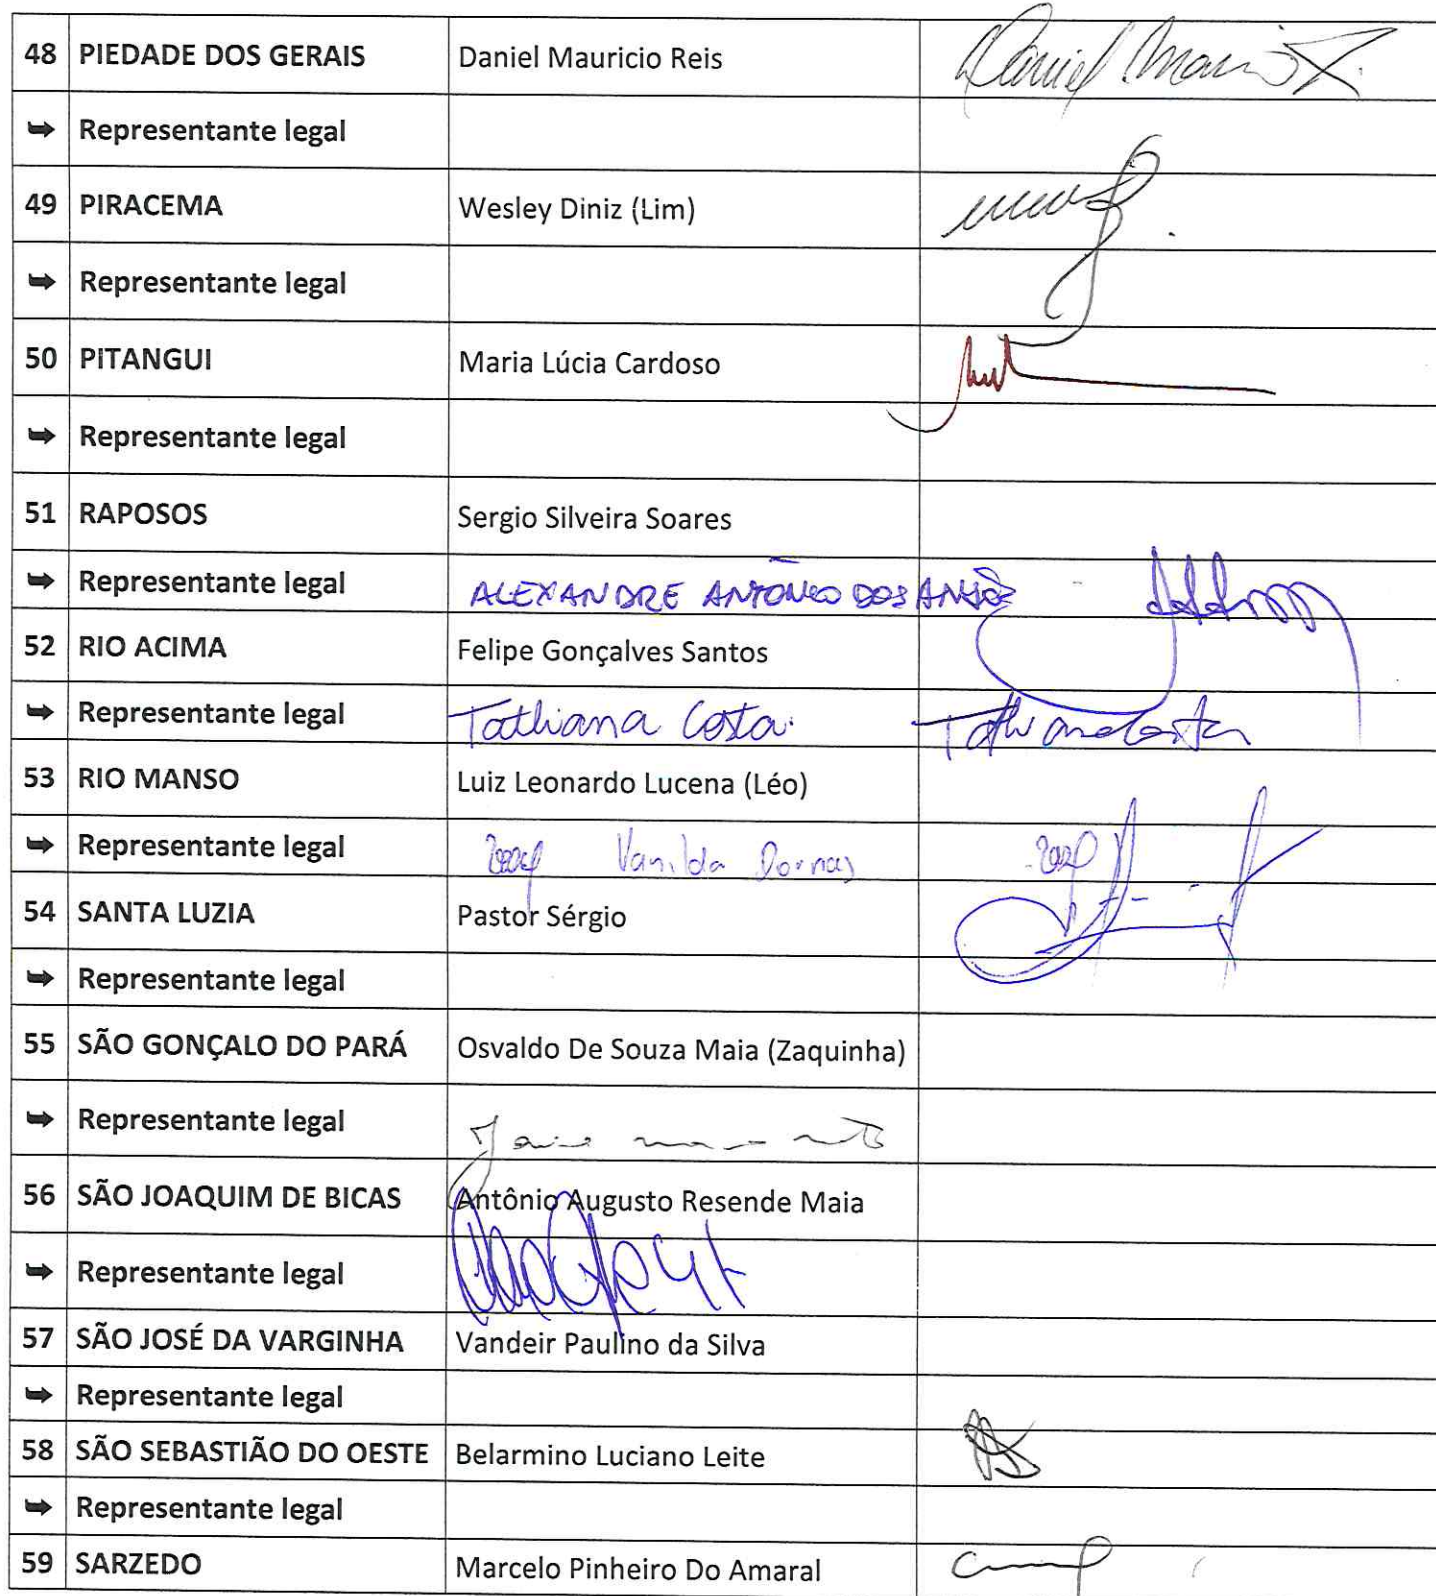 48 PIEDADE DOS GERAIS Daniel Mauricio Reis
➥ Representante legal
49 PIRACEMA Wesley Diniz (Lim)
➥ Representante legal
50 PITANGUI Maria Lúcia Cardoso
➥ Representante legal
51 RAPOSOS Sergio Silveira Soares
➥ Representante legal ALEXANDRE ANTÔNIO DOS ANJOS
52 RIO ACIMA Felipe Gonçalves Santos
➥ Representante legal Tathiana Costa. Tathiana Costa
53 RIO MANSO Luiz Leonardo Lucena (Léo)
➥ Representante legal Vanilda Dornas
54 SANTA LUZIA Pastor Sérgio
➥ Representante legal
55 SÃO GONÇALO DO PARÁ Osvaldo De Souza Maia (Zaquinha)
➥ Representante legal
56 SÃO JOAQUIM DE BICAS Antônio Augusto Resende Maia
➥ Representante legal
57 SÃO JOSÉ DA VARGINHA Vandeir Paulino da Silva
➥ Representante legal
58 SÃO SEBASTIÃO DO OESTE Belarmino Luciano Leite
➥ Representante legal
59 SARZEDO Marcelo Pinheiro Do Amaral